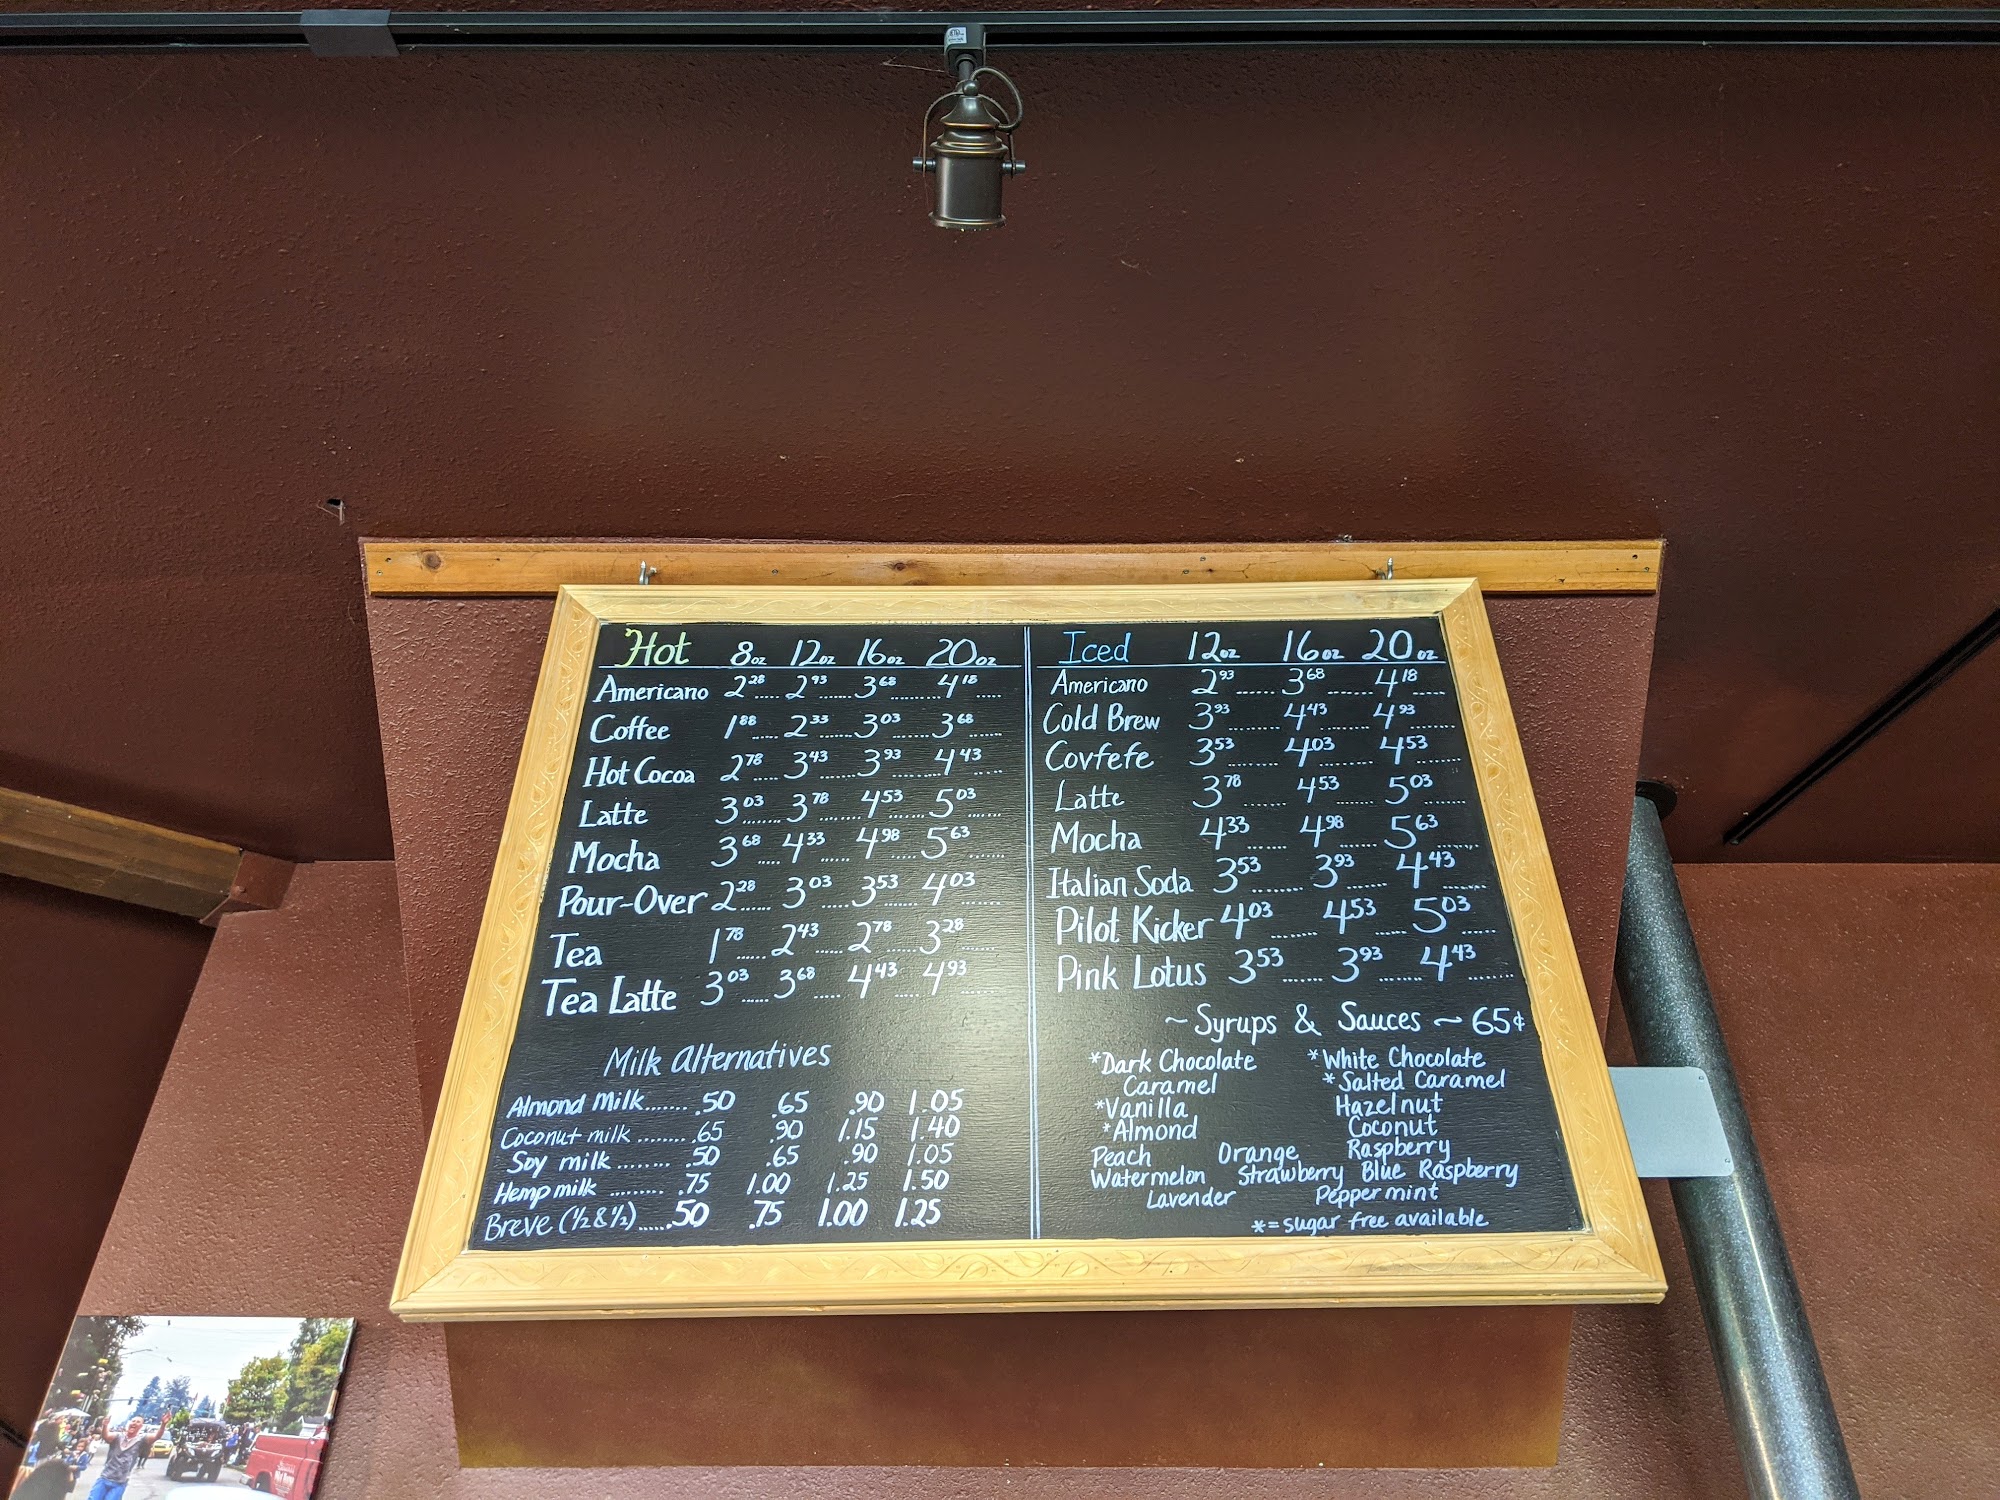 Hot 8oz 12oz 16oz 20oz
Americano 2.28 ..... 2.93 ..... 3.68 ........ 4.18 .....
Coffee 1.88 ..... 2.33 ...... 3.03 ........ 3.68 ......
Hot Cocoa 2.78 ..... 3.43 ...... 3.93 ........ 4.43 .....
Latte 3.03 ........ 3.78 ........ 4.53 ....... 5.03 .......
Mocha 3.68 ..... 4.33 ...... 4.98 ..... 5.63 .......
Pour-Over 2.28 ...... 3.03 ...... 3.53 ....... 4.03 .......
Tea 1.78 ...... 2.43 ..... 2.78 ...... 3.28 .......
Tea Latte 3.03 ...... 3.68 ..... 4.43 ..... 4.93 .......
Milk Alternatives
Almond Milk ....... .50 .65 .90 1.05
Coconut milk ........ .65 .90 1.15 1.40
Soy milk ........ .50 .65 .90 1.05
Hemp milk ......... .75 1.00 1.25 1.50
Breve (1/2 & 1/2) ..... .50 .75 1.00 1.25
Iced 12oz 16oz 20oz
Americano 2.93 ...... 3.68 ....... 4.18 .....
Cold Brew 3.93 ........ 4.43 ....... 4.93 ........
Covfefe 3.53 ........ 4.03 ....... 4.53 ........
Latte 3.78 ....... 4.53 ....... 5.03 ........
Mocha 4.33 ....... 4.98 ....... 5.63 ........
Italian Soda 3.53 ......... 3.93 ....... 4.43 .......
Pilot Kicker 4.03 ........ 4.53 ...... 5.03 ......
Pink Lotus 3.53 ....... 3.93 ...... 4.43 ........
~ Syrups & Sauces ~ 65¢
*Dark Chocolate *White Chocolate
Caramel *Salted Caramel
*Vanilla Hazelnut
*Almond Coconut
Peach Orange Raspberry
Watermelon Strawberry Blue Raspberry
Lavender Peppermint
*= sugar free available